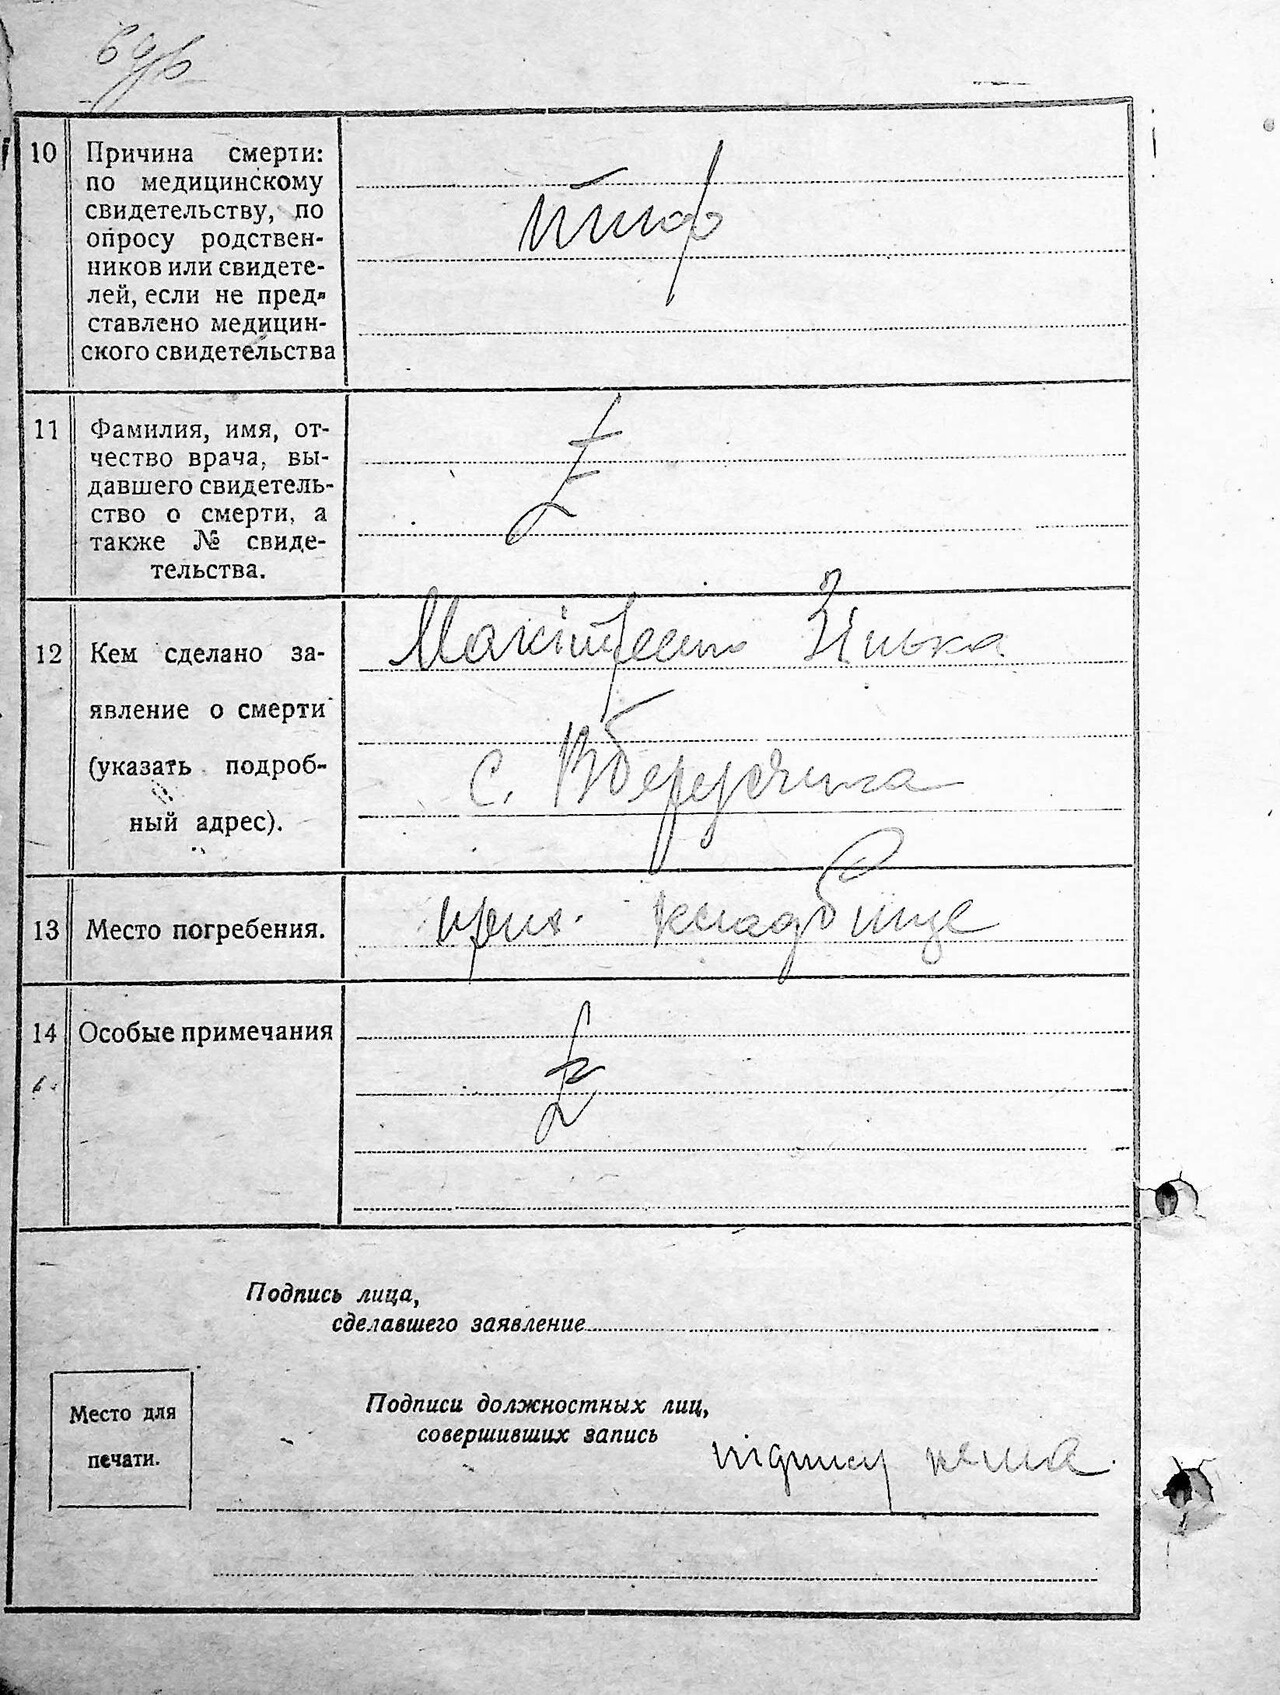 10 Причина смерти:
по медицинскому
свидетельству, по
опросу родствен-
ников или свидете-
лей, если не пред-
ставлено медицин-
ского свидетельства
тиф
11 Фамилия, имя, от-
чество врача, вы-
давшего свидетель-
ство о смерти, а
также № свиде-
тельства.
12 Кем сделано за-
явление о смерти
(указать подроб-
ный адрес).
Зінька
с.
13 Место погребения.
кладбище
14 Особые примечания
Подпись лица,
сделавшего заявление
Место для
печати.
Подписи должностных лиц,
совершивших запись
підпису нема